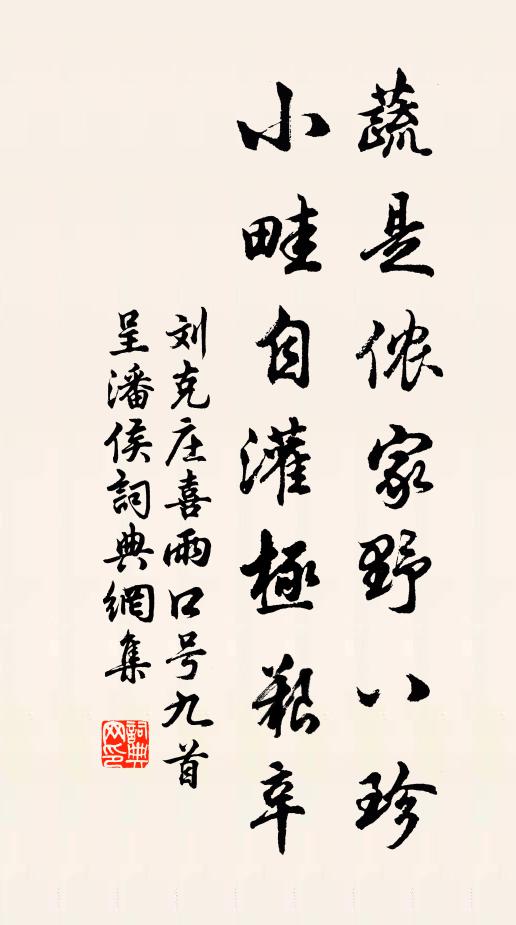 蔬是侬家野八珍
小畦自灌極艱辛
刘克庄喜雨口号九首
呈潘侯詞典網集
詞典网印